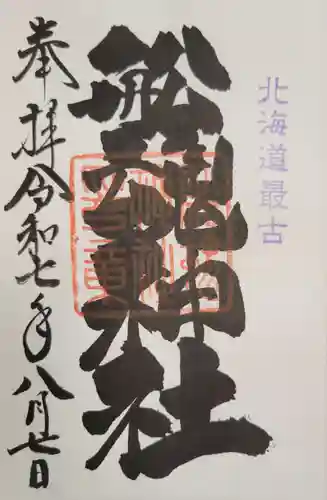 北海道最古
船魂神社
奉拝令和七年八月七日